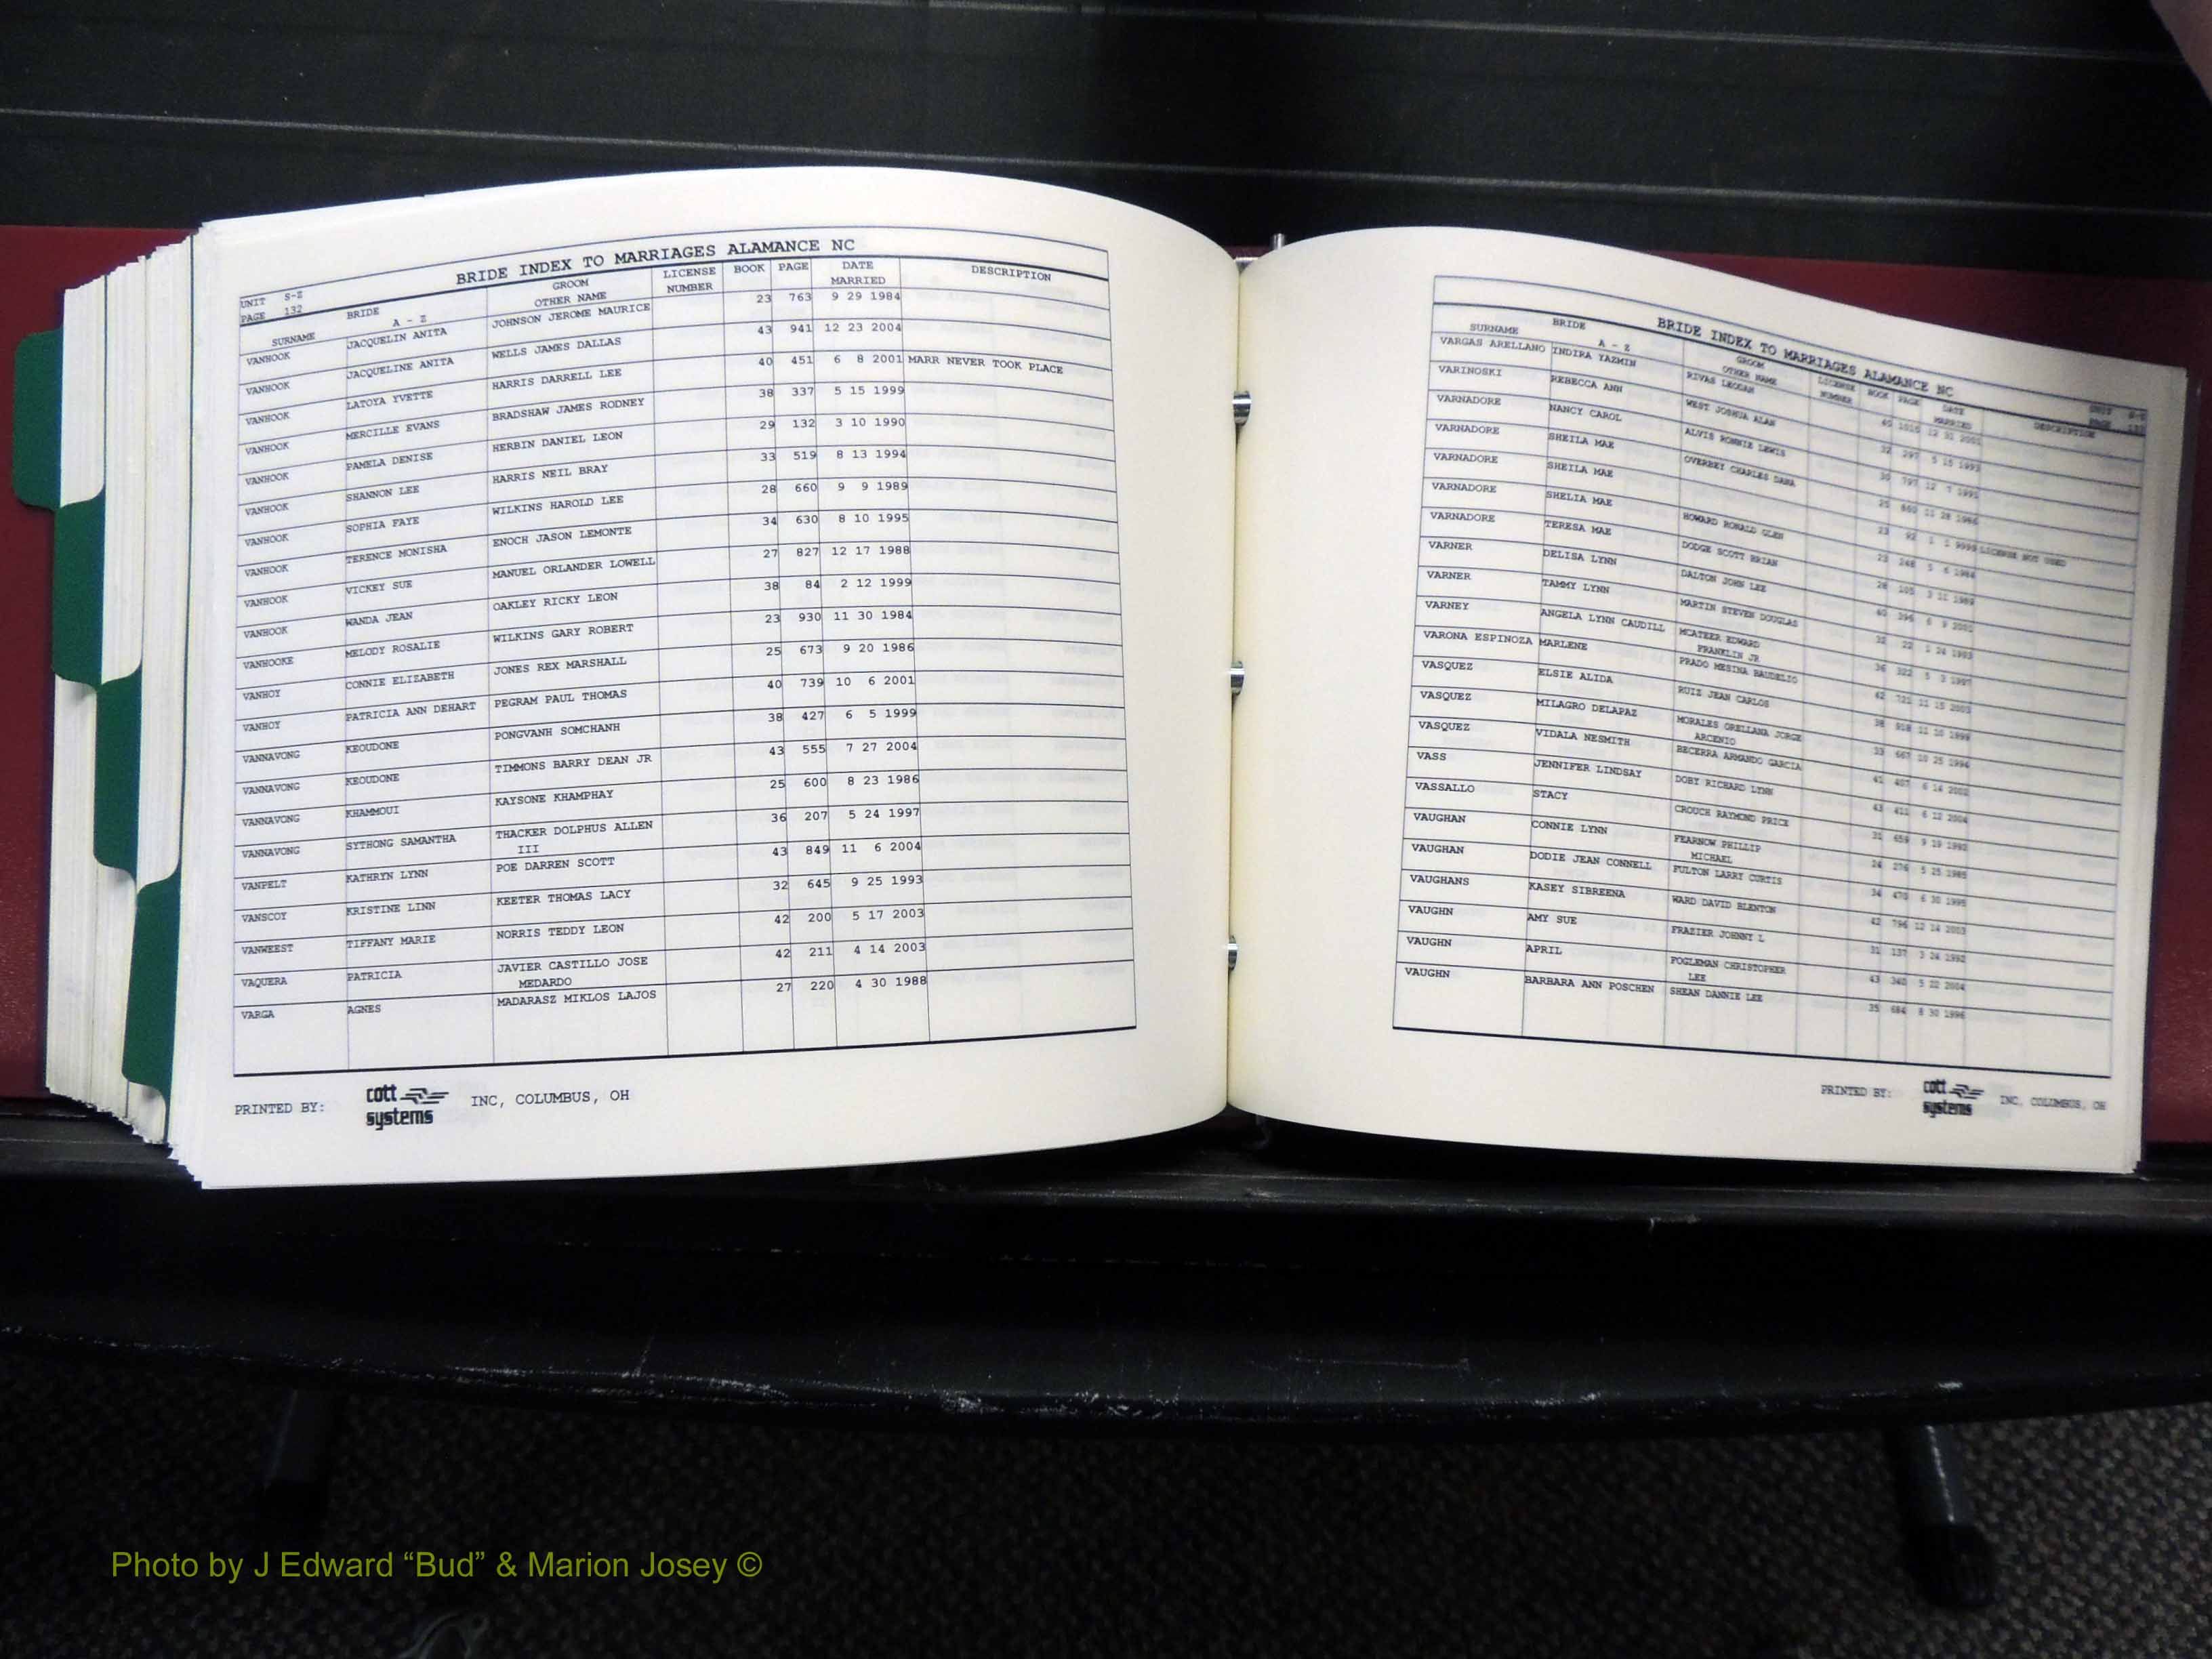 BRIDE INDEX TO MARRIAGES ALAMANCE NC
UNIT S-Z
PAGE 132
SURNAME BRIDE A - Z GROOM OTHER NAME LICENSE NUMBER BOOK PAGE DATE MARRIED DESCRIPTION
VANHOOK JACQUELIN ANITA JOHNSON JEROME MAURICE 23 763 9 29 1984
VANHOOK JACQUELINE ANITA WELLS JAMES DALLAS 43 941 12 23 2004
VANHOOK LATOYA YVETTE HARRIS DARRELL LEE 40 451 6 8 2001 MARR NEVER TOOK PLACE
VANHOOK MERCILLE EVANS BRADSHAW JAMES RODNEY 38 337 5 15 1999
VANHOOK PAMELA DENISE HERBIN DANIEL LEON 29 132 3 10 1990
VANHOOK SHANNON LEE HARRIS NEIL BRAY 33 519 8 13 1994
VANHOOK SOPHIA FAYE WILKINS HAROLD LEE 28 660 9 9 1989
VANHOOK TERENCE MONISHA ENOCH JASON LEMONTE 34 630 8 10 1995
VANHOOK VICKEY SUE MANUEL ORLANDER LOWELL 27 827 12 17 1988
VANHOOK WANDA JEAN OAKLEY RICKY LEON 38 84 2 12 1999
VANHOOKE MELODY ROSALIE WILKINS GARY ROBERT 23 930 11 30 1984
VANHOY CONNIE ELIZABETH JONES REX MARSHALL 25 673 9 20 1986
VANHOY PATRICIA ANN DEHART PEGRAM PAUL THOMAS 40 739 10 6 2001
VANNAVONG KEOUDONE PONGVANH SOMCHANH 38 427 6 5 1999
VANNAVONG KEOUDONE TIMMONS BARRY DEAN JR 43 555 7 27 2004
VANNAVONG KHAMMOUI KAYSONE KHAMPHAY 25 600 8 23 1986
VANNAVONG SYTHONG SAMANTHA THACKER DOLPHUS ALLEN III 36 207 5 24 1997
VANPELT KATHRYN LYNN POE DARREN SCOTT 43 849 11 6 2004
VANSCOY KRISTINE LINN KEETER THOMAS LACY 32 645 9 25 1993
VANWEEST TIFFANY MARIE NORRIS TEDDY LEON 42 200 5 17 2003
VAQUERA PATRICIA JAVIER CASTILLO JOSE MEDARDO 42 211 4 14 2003
VARGA AGNES MADARASZ MIKLOS LAJOS 27 220 4 30 1988
PRINTED BY: cott systems INC, COLUMBUS, OH
BRIDE INDEX TO MARRIAGES ALAMANCE NC
SURNAME BRIDE A - Z GROOM OTHER NAME LICENSE NUMBER BOOK PAGE DATE MARRIED DESCRIPTION
VARGAS ARELLANO INDIRA YAZMIN RIVAS LEODAN
VARINOSKI REBECCA ANN WEST JOSHUA ALAN
VARNADORE NANCY CAROL ALVIS RONNIE LEWIS
VARNADORE SHEILA MAE OVERBEY CHARLES DANA
VARNADORE SHEILA MAE LICENSE NOT USED
VARNADORE SHELIA MAE HOWARD RONALD GLEN
VARNADORE TERESA MAE DODGE SCOTT BRIAN
VARNER DELISA LYNN DALTON JOHN LEE
VARNER TAMMY LYNN MARTIN STEVEN DOUGLAS
VARNEY ANGELA LYNN CAUDILL MCATEER EDWARD FRANKLIN JR
VARONA ESPINOZA MARLENE PRADO MESINA BAUDELIO
VASQUEZ ELSIE ALIDA RUIZ JEAN CARLOS
VASQUEZ MILAGRO DELAPAZ MORALES ORELLANA JORGE ARCENIO
VASQUEZ VIDALA NESMITH BECERRA ARMANDO GARCIA
VASS JENNIFER LINDSAY DOBY RICHARD LYNN
VASSALLO STACY CROUCH RAYMOND PRICE
VAUGHAN CONNIE LYNN FEARNOW PHILLIP MICHAEL
VAUGHAN DODIE JEAN CONNELL FULTON LARRY CURTIS
VAUGHANS KASEY SIBREENA WARD DAVID BLENTON
VAUGHN AMY SUE FRAZIER JOHNNY L
VAUGHN APRIL FOGLEMAN CHRISTOPHER LEE
VAUGHN BARBARA ANN POSCHEN SHEAN DANNIE LEE
PRINTED BY: cott systems INC, COLUMBUS, OH
Photo by J Edward “Bud” & Marion Josey ©